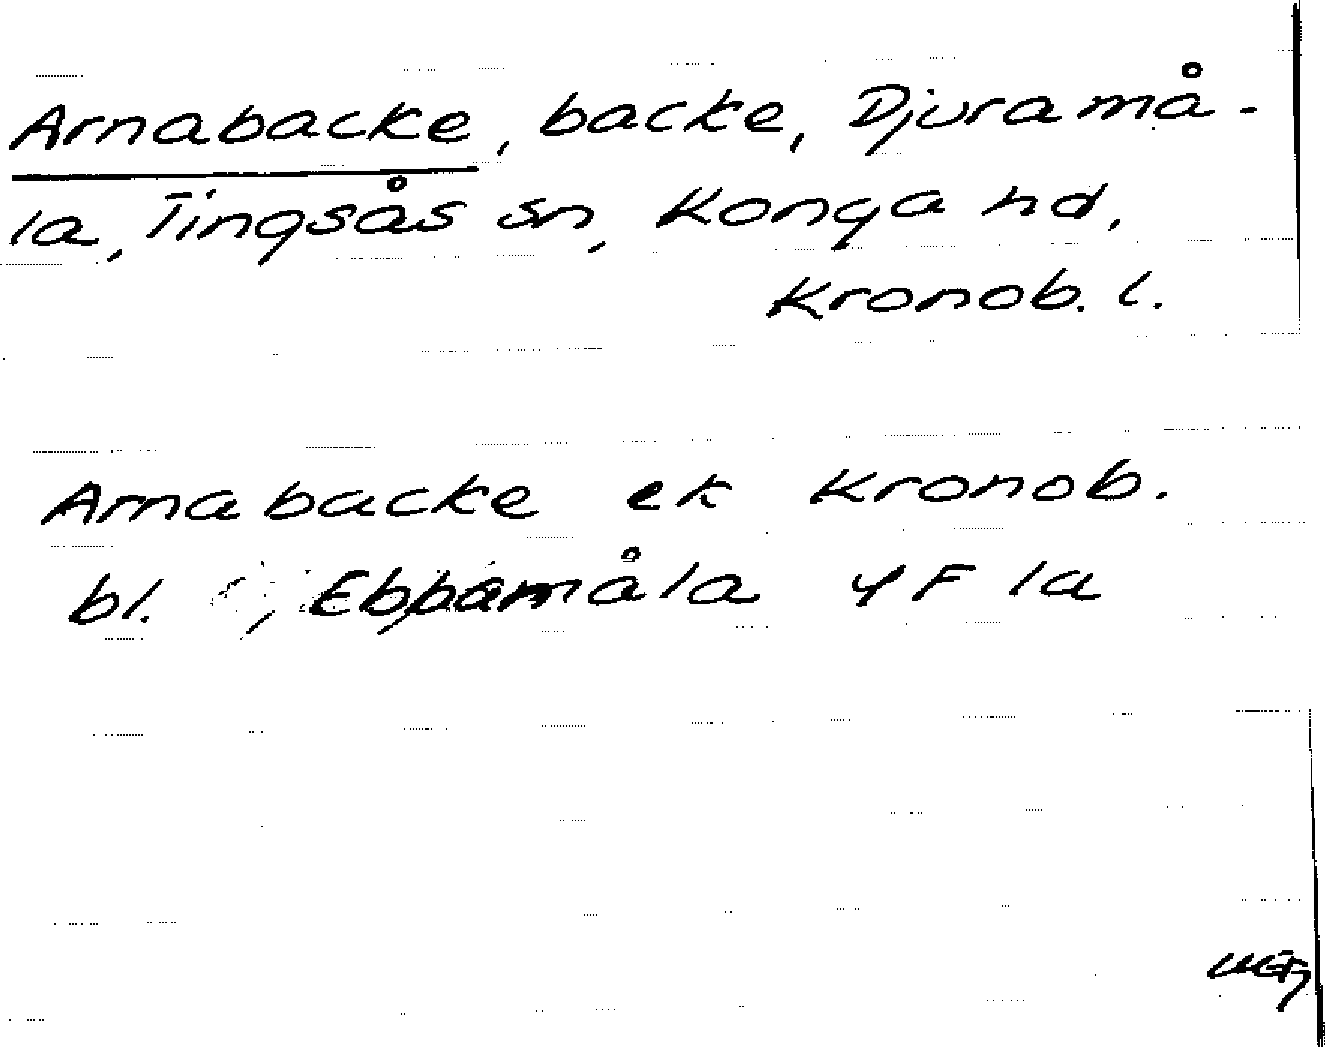 Arnabacke, backe, Djuramå-
la, Tingsås sn, Konga hd,
Kronob. l.
Arnabacke ek Kronob.
bl. , Ebbamåla 4F 1a